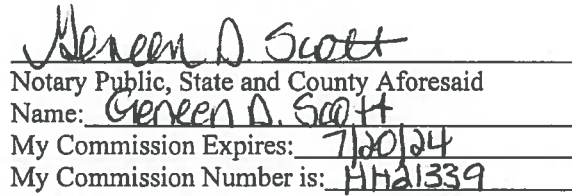 Geneen D. Scott
Notary Public, State and County Aforesaid
Name: Geneen D. Scott
My Commission Expires: 7/20/24
My Commission Number is: HH21339